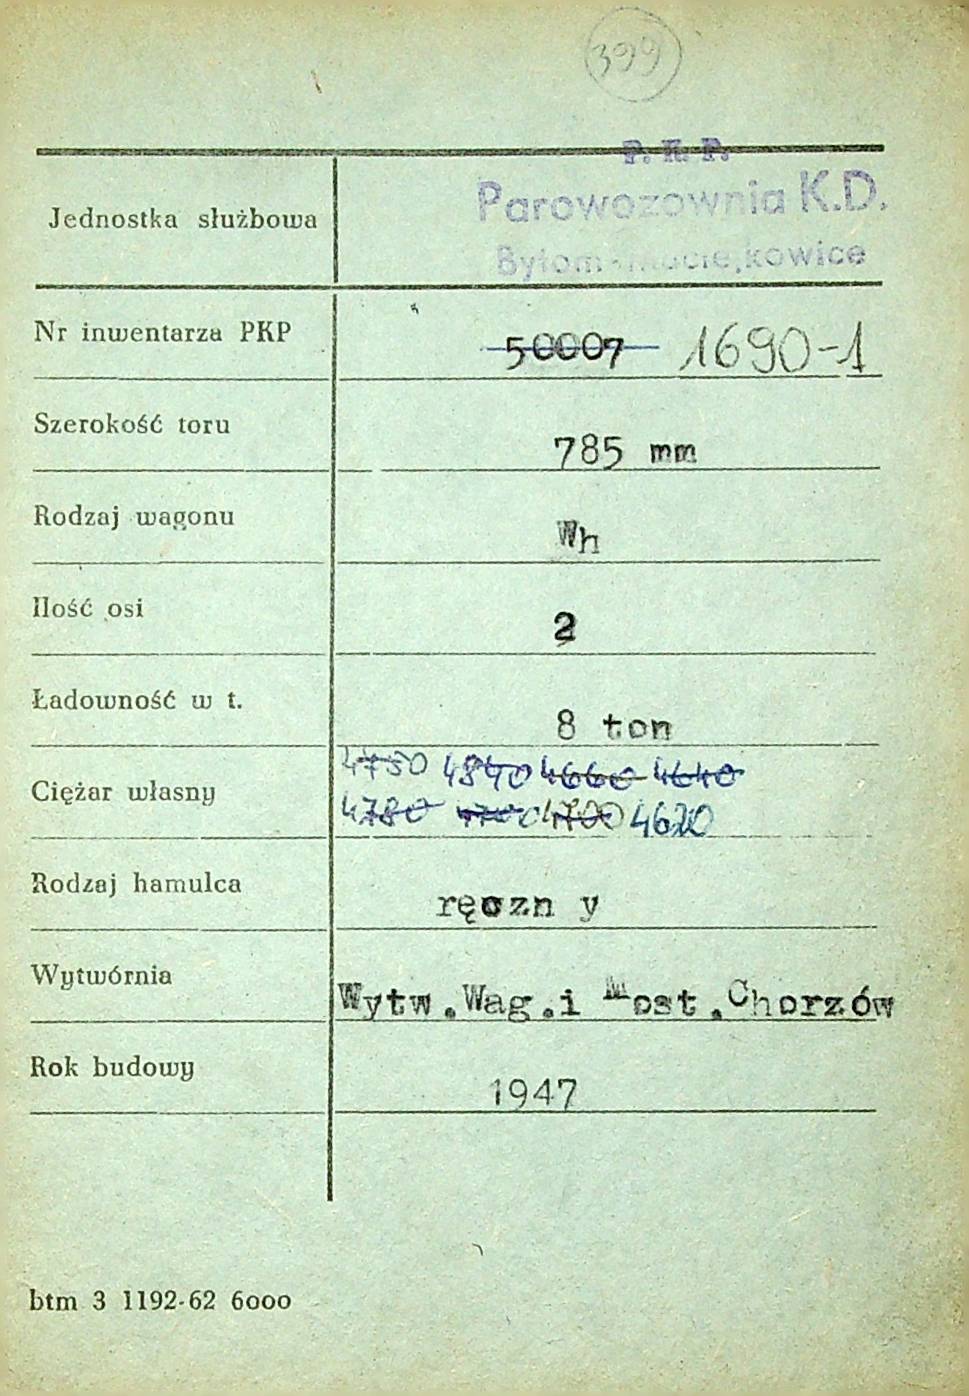 399
P. K. P.
Jednostka służbowa Parowozownia K.D.
Bytom-Maciejkowice
Nr inwentarza PKP 50007 1690-1
Szerokość toru 785 mm
Rodzaj wagonu Wh
Ilość osi 2
Ładowność w t. 8 ton
4750 4840 4660 4640
Ciężar własny 4780 4700 4700 4620
Rodzaj hamulca ręczn y
Wytwórnia Wytw.Wag.i Most.Chorzów
Rok budowy 1947
btm 3 1192-62 6000